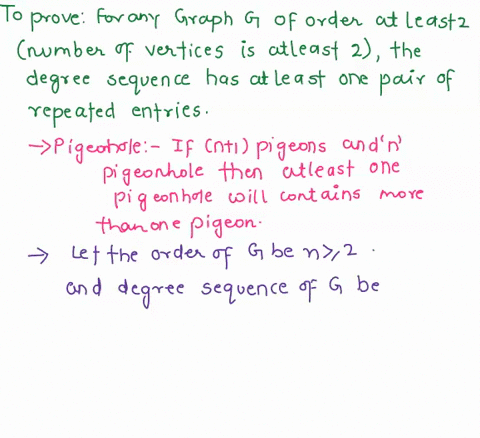 To prove: For any Graph G of order at least 2
(number of vertices is atleast 2), the
degree sequence has at least one pair of
repeated entries.
→ Pigeohole:- If (n+1) pigeons and 'n'
pigeonhole then atleast one
pigeonhole will contains more
than one pigeon.
→ Let the order of G be n≥2.
and degree sequence of G be